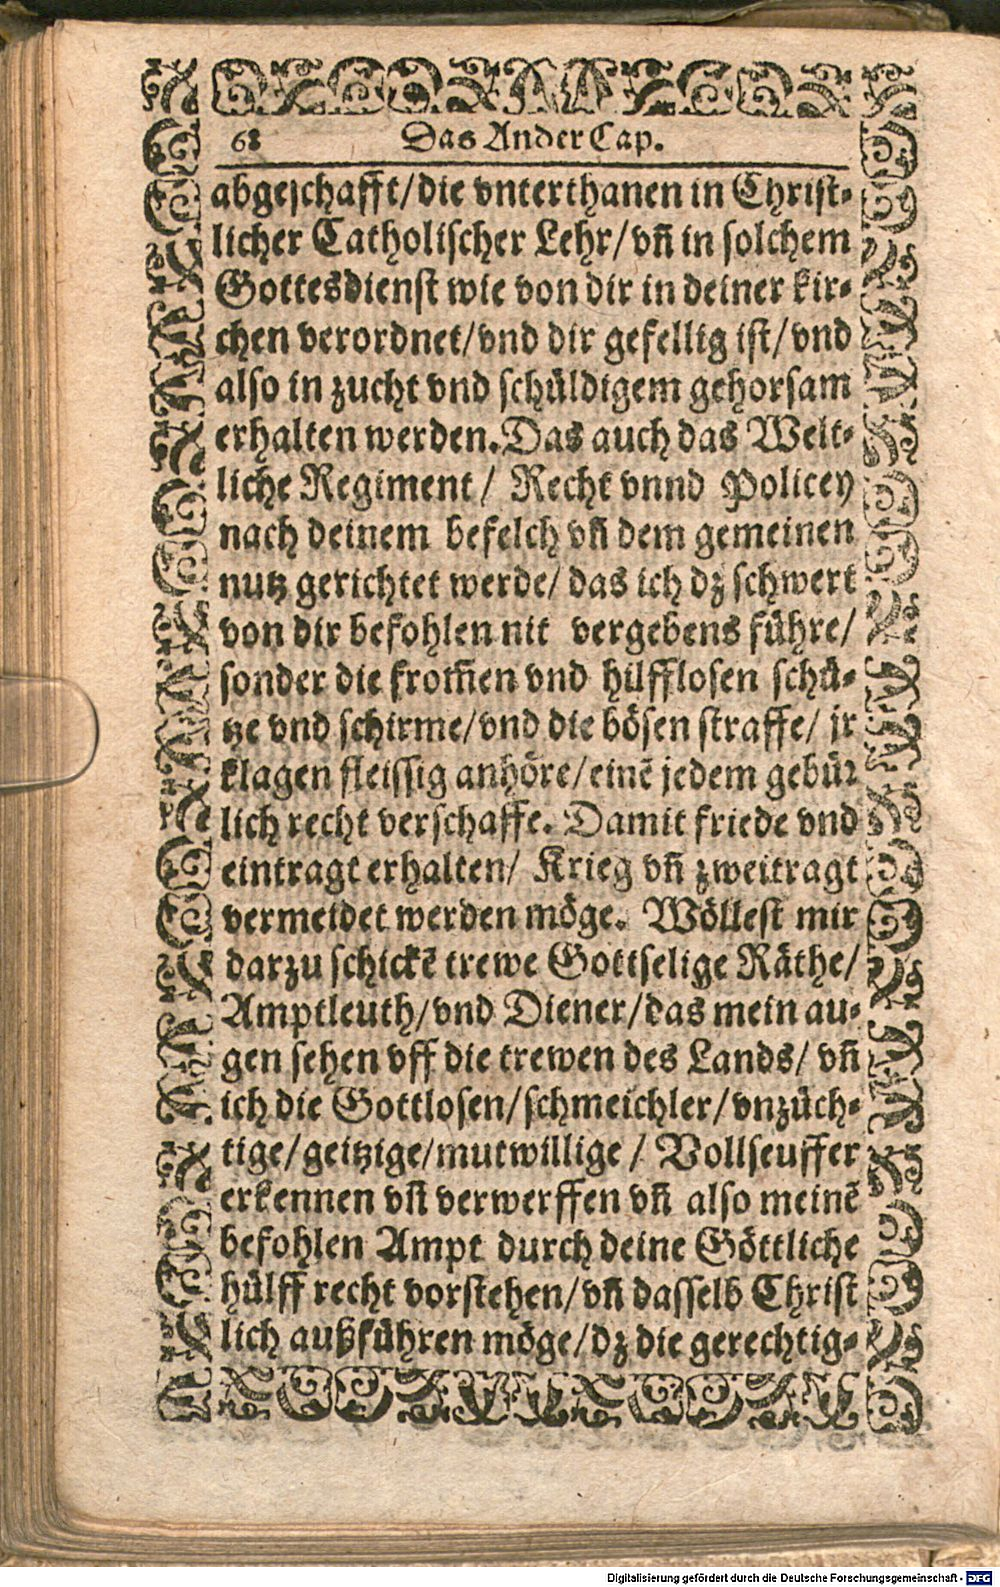 68 Das Ander Cap.
abgeschafft/die vnterthanen in Christ-
licher Catholischer Lehr/vñ in solchem
Gottesdienst wie von dir in deiner kir-
chen verordnet/vnd dir gefellig ist/vnd
also in zucht vnd schüldigem gehorsam
erhalten werden. Das auch das Welt-
liche Regiment/ Recht vnnd Policey
nach deinem befelch vñ dem gemeinen
nutz gerichtet werde/ das ich dz schwert
von dir befohlen nit vergebens führe/
sonder die from̃en vnd hilfflosen schü-
tze vnd schirme/vnd die bösen straffe/ jr
klagen fleissig anhöre/einẽ jedem gebür
lich recht verschaffe. Damit friede vnd
eintragt erhalten/ Krieg vñ zweitragt
vermeidet werden möge. Wöllest mir
darzu schickẽ trewe Gottselige Räthe/
Amptleuth/vnd Diener/das mein au-
gen sehen vff die trewen des Lands/ vñ
ich die Gottlosen/schmeichler/vnzüch-
tige/geitzige/mutwillige/ Vollseuffer
erkennen vñ verwerffen vñ also meinẽ
befohlen Ampt durch deine Göttliche
hülff recht vorstehen/vñ dasselb Christ
lich außführen möge/dz die gerechtig-
Digitalisierung gefördert durch die Deutsche Forschungsgemeinschaft - DFG